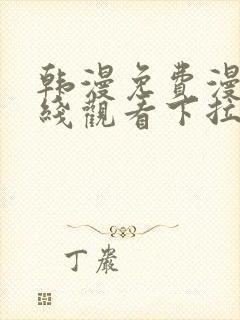 韩漫免費漫
綫觀看下拉
丁嚴